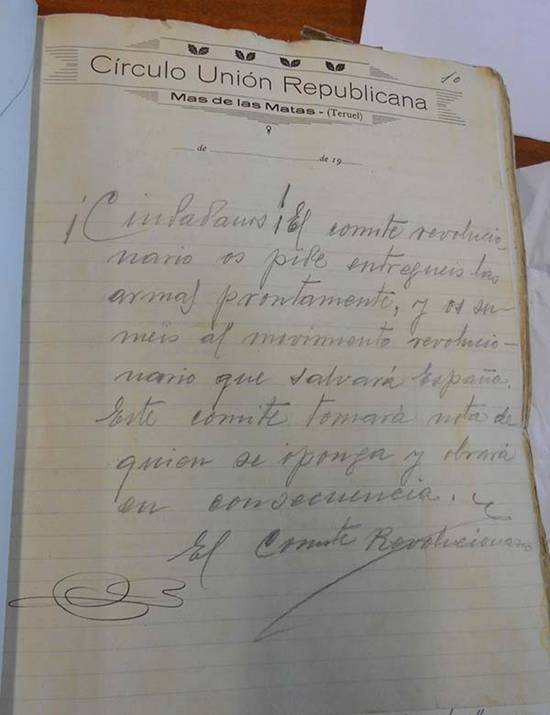 10
Círculo Unión Republicana
Mas de las Matas - (Teruel)
de de 19
¡Ciudadanos! ¡El comite revolucio-
nario os pide entregueis las
armas prontamente, y os su-
meis al movimiento revolucio-
nario que salvará España.
Este comite tomará nota de
quien se oponga y obrará
en consecuencia.
El Comite Revolucionario